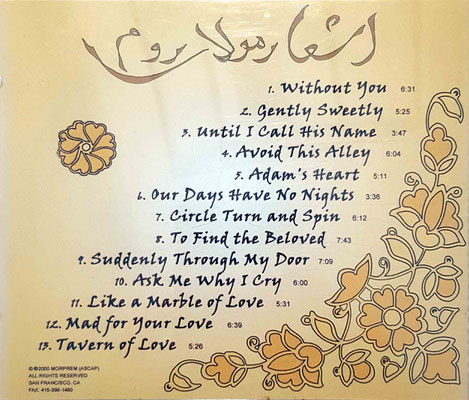 اشعار مولانا روم
1. Without You 6:31
2. Gently Sweetly 5:25
3. Until I Call His Name 3:47
4. Avoid This Alley 6:04
5. Adam's Heart 5:11
6. Our Days Have No Nights 3:36
7. Circle Turn and Spin 6:12
8. To Find the Beloved 7:43
9. Suddenly Through My Door 7:09
10. Ask Me Why I Cry 6:00
11. Like a Marble of Love 5:31
12. Mad for Your Love 6:39
13. Tavern of Love 5:26
©℗2000 MORPREM (ASCAP)
ALL RIGHTS RESERVED
SAN FRANCISCO, CA
FAX. 415-399-1480